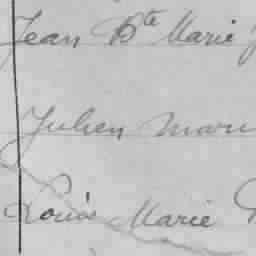 Jean Bte Marie
Julien Marie
Louis Marie